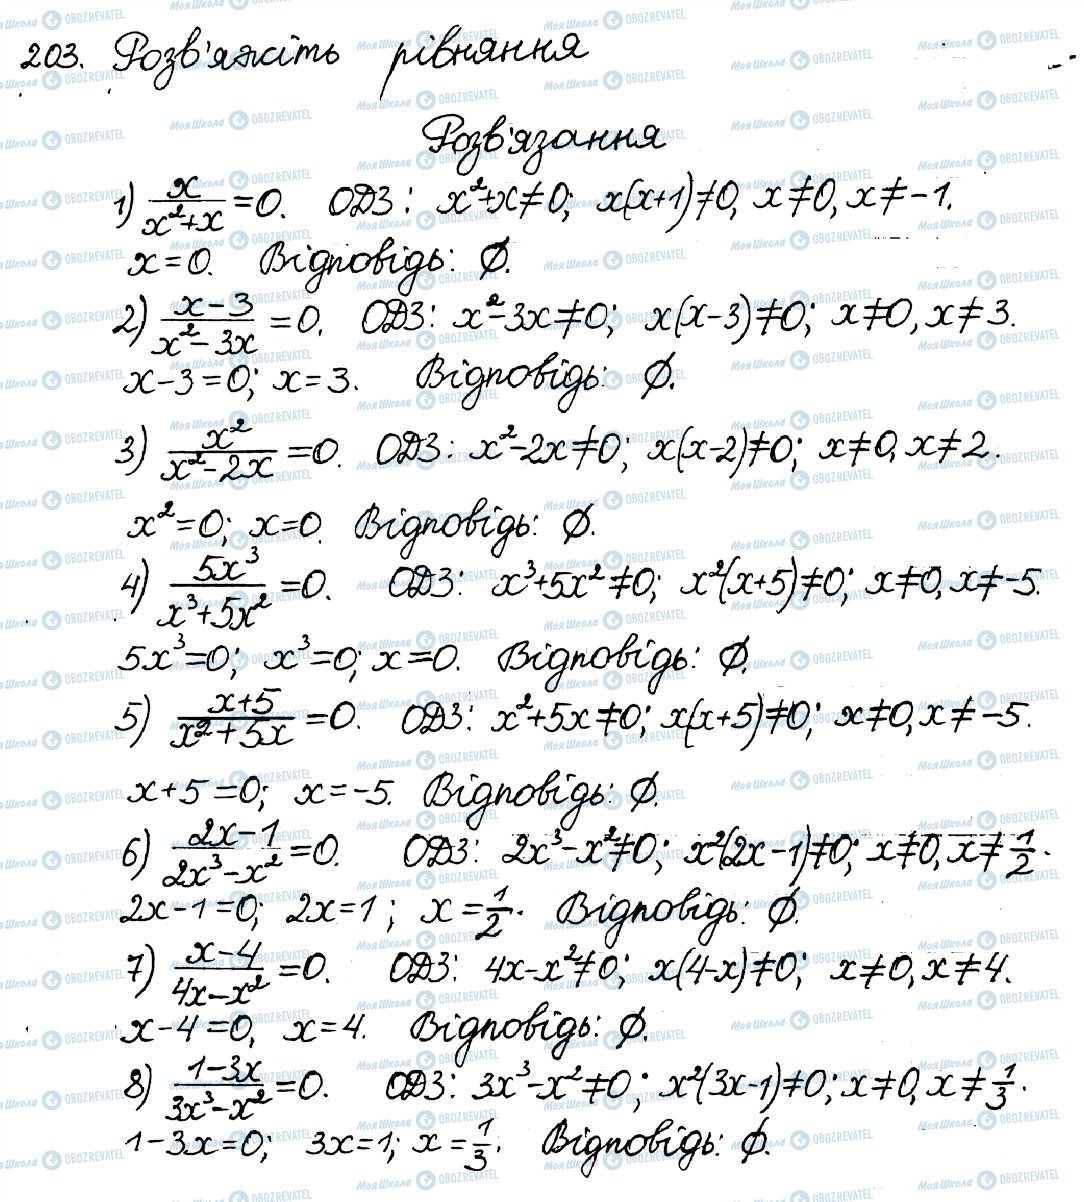 203. Розв'яжіть рівняння
Розв'язання
1) x/(x²+x) = 0. ОДЗ: x²+x≠0; x(x+1)≠0, x≠0, x≠-1.
x=0. Відповідь: ∅.
2) (x-3)/(x²-3x) = 0. ОДЗ: x²-3x≠0; x(x-3)≠0; x≠0, x≠3.
x-3=0; x=3. Відповідь: ∅.
3) x²/(x²-2x) = 0. ОДЗ: x²-2x≠0; x(x-2)≠0; x≠0, x≠2.
x²=0; x=0. Відповідь: ∅.
4) 5x³/(x³+5x²) = 0. ОДЗ: x³+5x²≠0; x²(x+5)≠0; x≠0, x≠-5.
5x³=0; x³=0; x=0. Відповідь: ∅.
5) (x+5)/(x²+5x) = 0. ОДЗ: x²+5x≠0; x(x+5)≠0; x≠0, x≠-5.
x+5=0; x=-5. Відповідь: ∅.
6) (2x-1)/(2x³-x²) = 0. ОДЗ: 2x³-x²≠0; x²(2x-1)≠0; x≠0, x≠1/2.
2x-1=0; 2x=1; x=1/2. Відповідь: ∅.
7) (x-4)/(4x-x²) = 0. ОДЗ: 4x-x²≠0; x(4-x)≠0; x≠0, x≠4.
x-4=0, x=4. Відповідь: ∅.
8) (1-3x)/(3x³-x²) = 0. ОДЗ: 3x³-x²≠0; x²(3x-1)≠0; x≠0, x≠1/3.
1-3x=0; 3x=1; x=1/3. Відповідь: ∅.
Моя Школа OBOZREVATEL